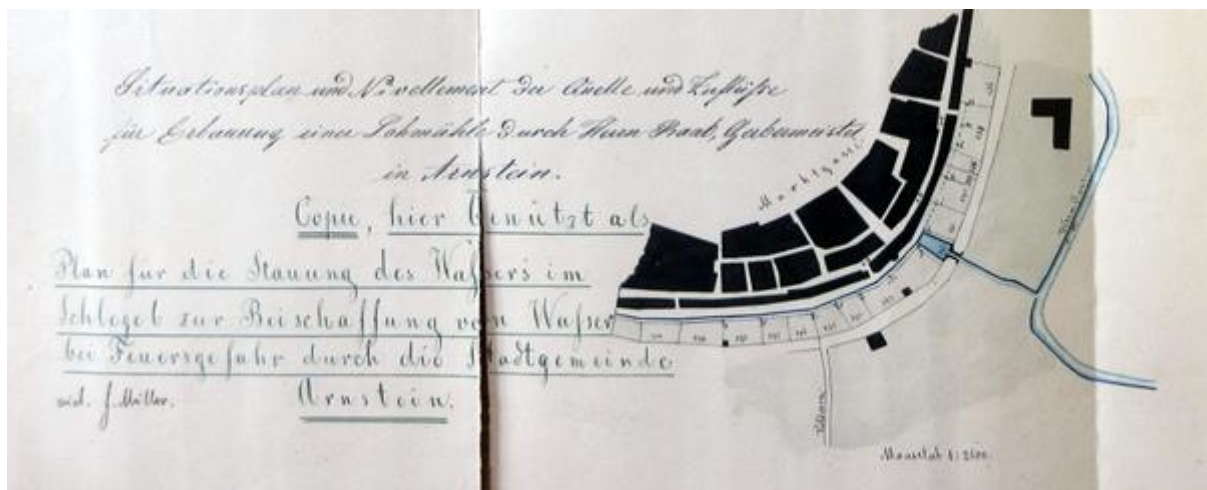 Situationsplan und Nivellement der Quelle und Zuflüsse
für Erbauung einer Lohmühle durch Herrn Raab, Gerbermeister
in Arnstein.
Copie, hier benützt als
Plan für die Stauung des Waßers im
Schlegel zur Beischaffung vom Waßer
bei Feuersgefahr durch die Stadtgemeinde
Arnstein.
J. Müller.
Marktgasse
Maasstab 1:2500.